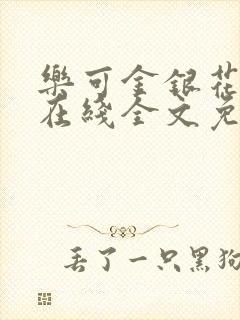 樂可金銀花
在綫全文免
丢了一只黑狗